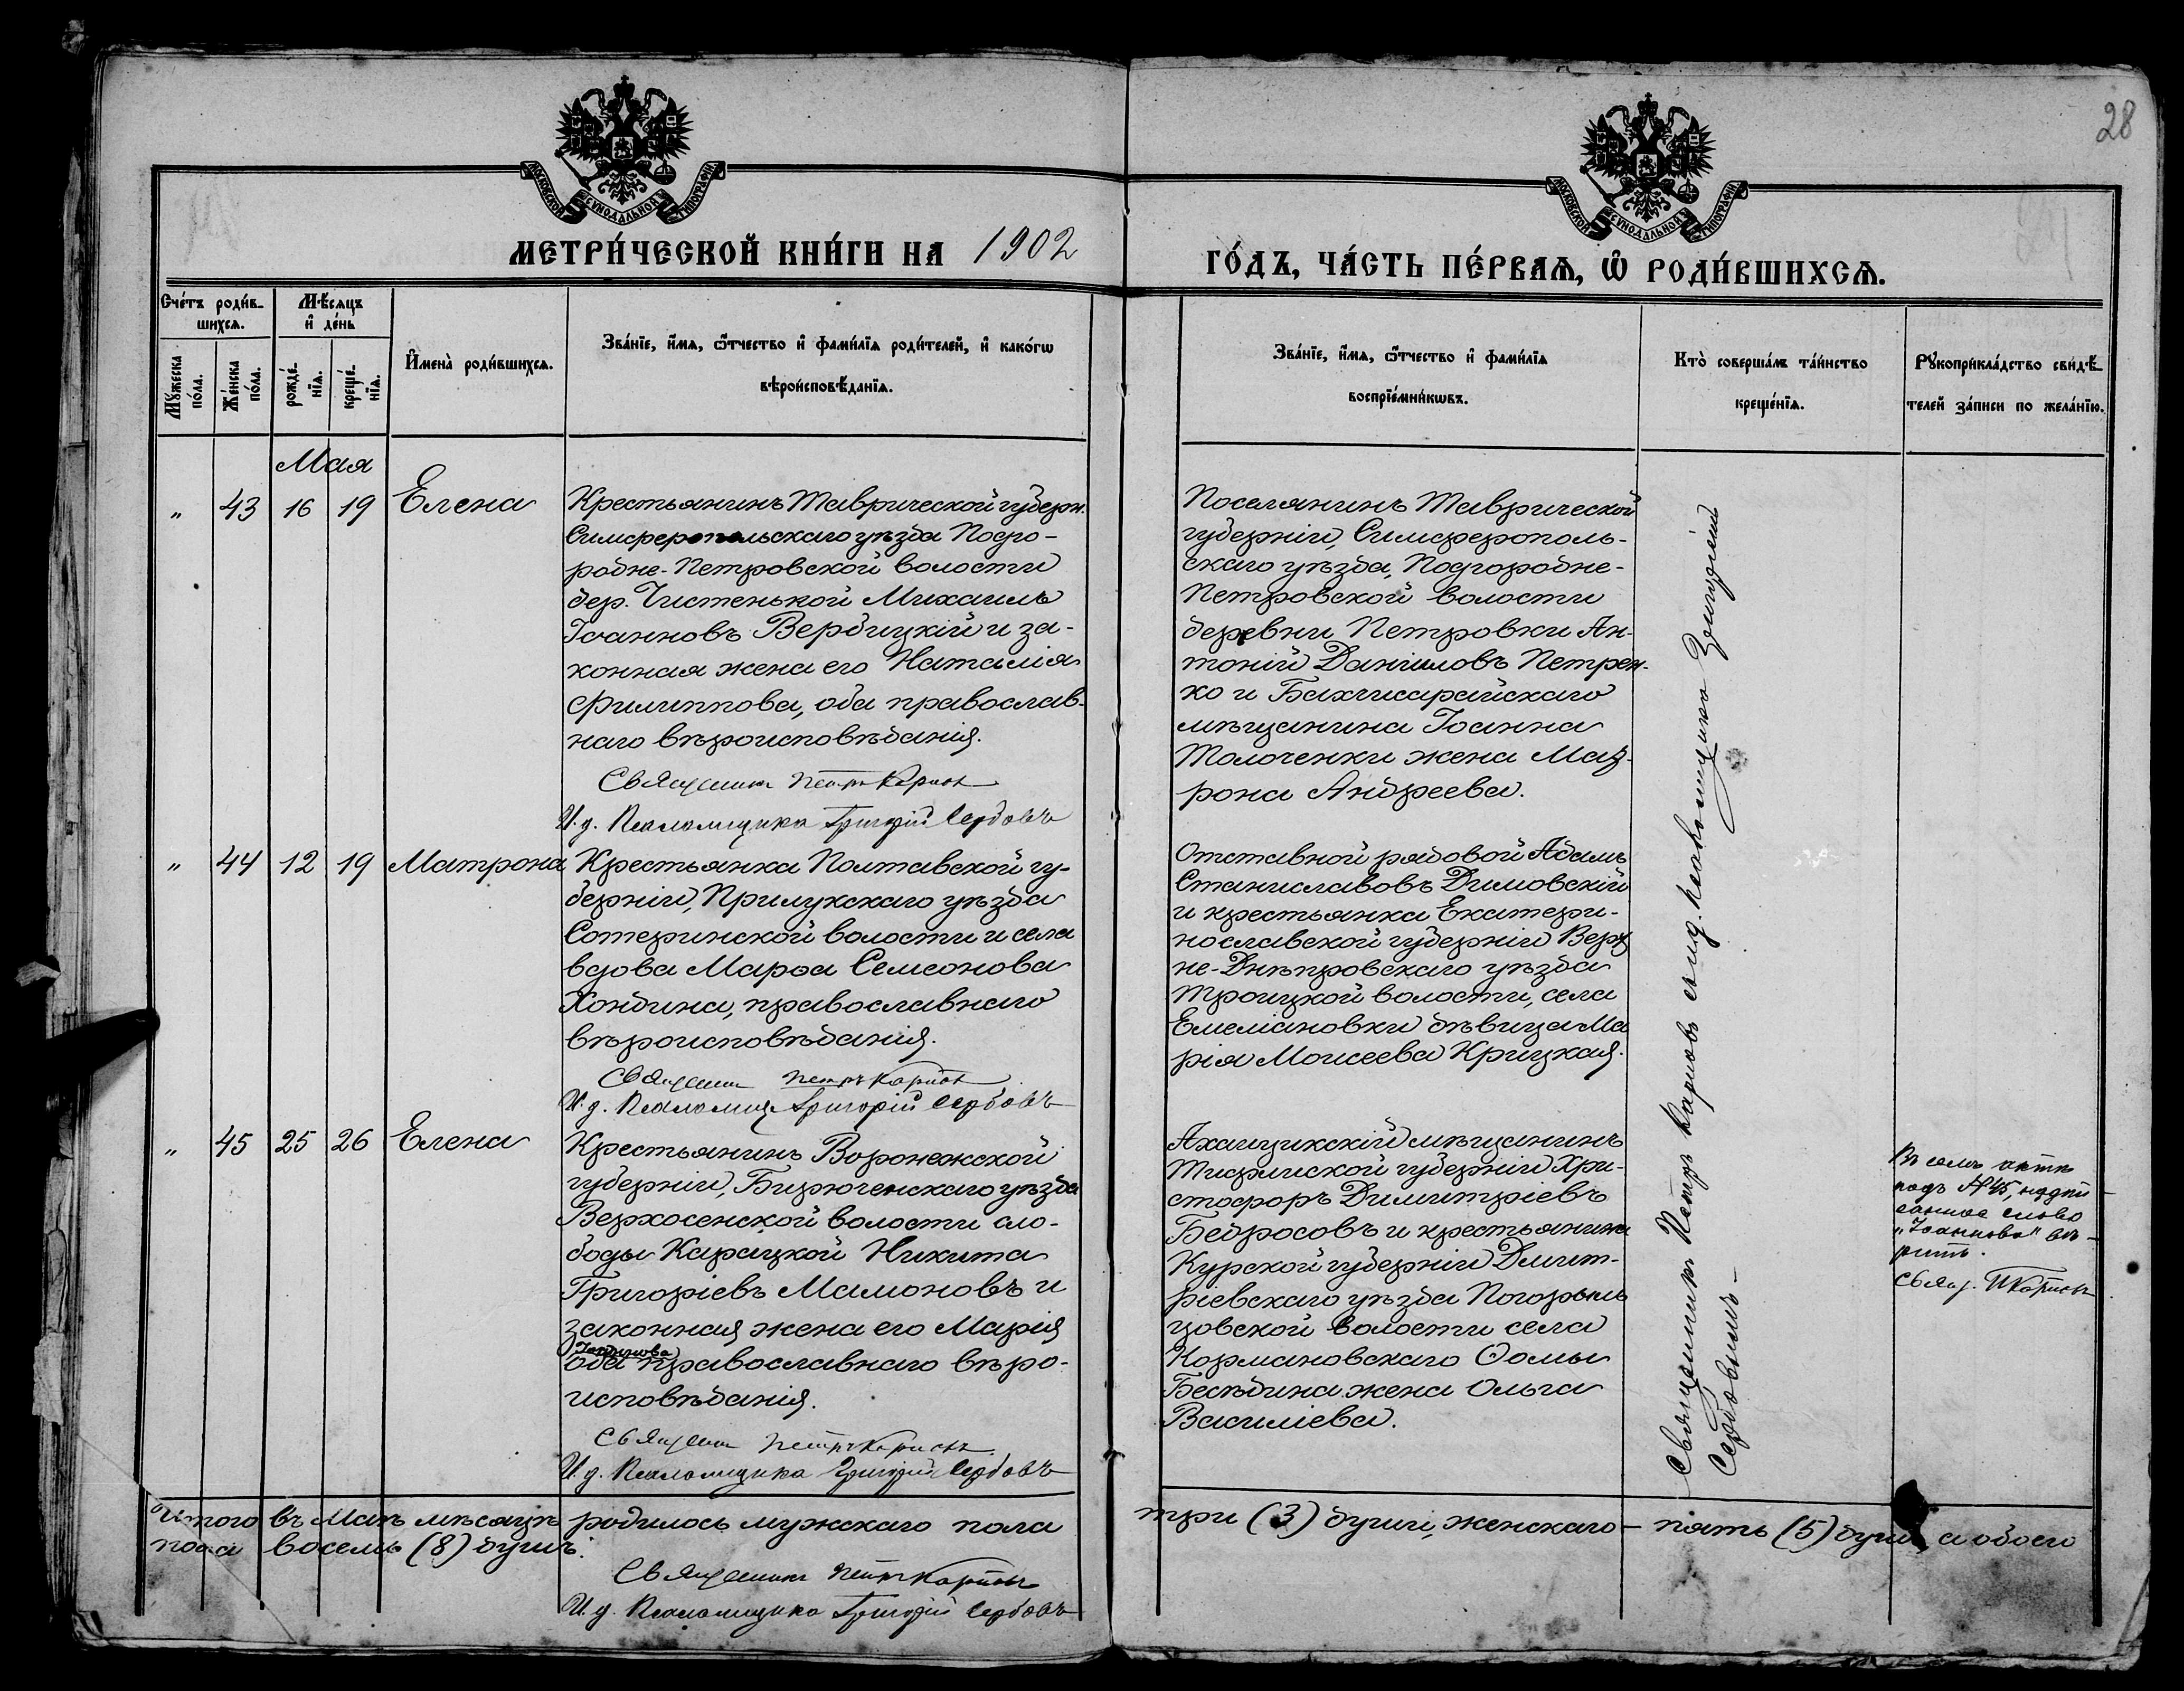 28
МОСКОВСКОЙ СѴНОДАЛЬНОЙ ТИПОГРАФІИ
МОСКОВСКОЙ СѴНОДАЛЬНОЙ ТИПОГРАФІИ
МЕТРИ́ЧЕСКОЙ КНИ́ГИ НА 1902
ГО́ДЪ, ЧА́СТЬ ПЕ́РВАѦ, Ѿ РОДИ́ВШИХСѦ.
Сче́тъ роди́в-
шихсѧ.
Мѣ́сяцъ
и҆ де́нь
Му́жеска
по́ла.
Же́нска
по́ла.
рожде́-
нїѧ.
креще́-
нїѧ.
И҆мена̀ роди́вшихсѧ.
Зва́нїе, и҆́мѧ, ѻ҆́тчество и҆ фами́лїѧ роди́телей, и҆ како́гѡ
вѣроисповѣ́данїѧ.
Зва́нїе, и҆́мѧ, ѻ҆́тчество и҆ фами́лїѧ
воспрїе́мникѡвъ.
Кто̀ соверша́лъ та́инство
креще́нїѧ.
Рꙋкоприкла́дство свидѣ́-
телей за́писи по жела́нїю.
Мая
„ 43 16 19 Елена
Крестьянинъ Таврической губерн.
Симферопольскаго уѣзда Подго-
родне-Петровской волости
дер. Чистенькой Михаилъ
Іоанновъ Вербицкій и за-
конная жена его Наталія
Филиппова, оба православ-
наго вѣроисповѣданія.
Священникъ Петръ Карповъ
И. д. Псаломщика Григорій Сербовъ
Поселянинъ Таврической
губерніи, Симферополь-
скаго уѣзда, Подгородне-
Петровской волости
деревни Петровки Ан-
тоній Даніиловъ Петрен-
ко и Бахчисарайскаго
мѣщанина Іоанна
Толоченки жена Мат-
рона Андреева.
„ 44 12 19 Матрона
Крестьянка Полтавской гу-
берніи, Прилукскаго уѣзда
волости и села
вдова Марѳа Семеонова
Хондина, православнаго
вѣроисповѣданія.
Священникъ Петръ Карповъ
И. д. Псаломщ. Григорій Сербовъ
Отставной рядовой Адамъ
Станиславовъ Димовскій
и крестьянка Екатери-
нославской губерніи Верх-
не-Днѣпровскаго уѣзда
Троицкой волости, села
Емеліановки дѣвица Ма
рія Моисеева Крицкая.
„ 45 25 26 Елена
Крестьянинъ Воронежской
губерніи, Бирюченскаго уѣзда
Верхосенской волости сло-
боды Никита
Григоріевъ Мамоновъ и
законная жена его Марія
Іоаннова
оба православнаго вѣро-
исповѣданія.
Священникъ Петръ Карповъ
И. д. Псаломщика Григорій Сербовъ
Ахалцикскій мѣщанинъ
Тифлиской губерніи Хри-
стофоръ Димитріевъ
Бедросовъ и крестьянина
Курской губерніи Дмит-
ріевскаго уѣзда
волости села
Кормановскаго Ѳомы
Бесѣдина жена Ольга
Василіева.
Священникъ Петръ Карповъ съ и. д. псаломщика Григоріемъ
Сербовымъ –
Въ семъ актѣ
подъ № 45, надпи
санное слово
„Іоаннова“ вѣ-
рить.
Свящ. П Карповъ
Итого въ Маѣ мѣсяцѣ родилось мужскаго пола три (3) души, женскаго – пять (5) душъ, а обоего
пола восемь (8) душъ.
Священникъ Петръ Карповъ
И. д. Псаломщика Григорій Сербовъ